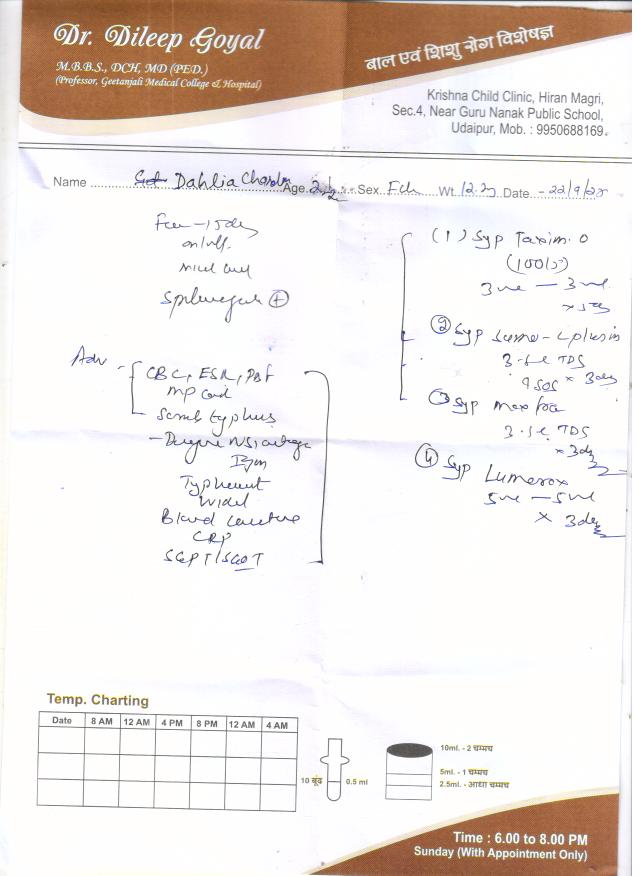 Dr. Dileep Goyal
M.B.B.S., DCH, MD (PED.)
(Professor, Geetanjali Medical College & Hospital)
बाल एवं शिशु रोग विशेषज्ञ
Krishna Child Clinic, Hiran Magri,
Sec.4, Near Guru Nanak Public School,
Udaipur, Mob. : 9950688169
Name Dahlia Age Sex Fch Wt. 12.2 Date - 22/9/
on/off
Adv
CBC, ESR, PBF
MP card
Scrub typhus
- Dengue NS1 antigen
IgM
Typhident
Widal
Blood culture
CRP
SGPT/SGOT
(1) Syp Taxim. O
(100/5)
3 ml — 3 ml
② Syp
TDS
SOS x 3 day
③ Syp
TDS
x 3 day
④ Syp
5 ml — 5 ml
x 3 day
Temp. Charting
Date 8 AM 12 AM 4 PM 8 PM 12 AM 4 AM
10 बूंद 0.5 ml
10ml. - 2 चम्मच
5ml. - 1 चम्मच
2.5ml. - आधा चम्मच
Time : 6.00 to 8.00 PM
Sunday (With Appointment Only)